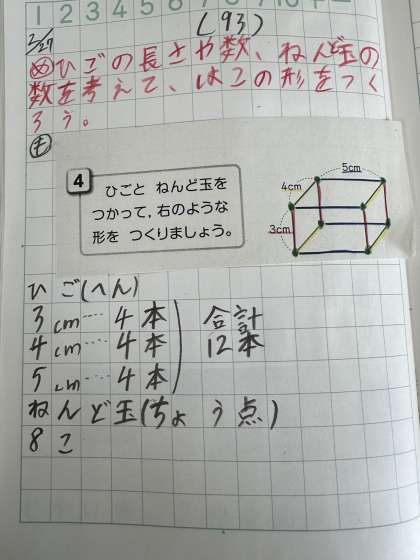 1 2 3 4 5 6 7 8 9 10
(93)
2/27
め ひごの長さや数、ねんど玉の
数を考えて、はこの形をつく
ろう。
も
4
ひごと ねんど玉を
つかって、右のような
形を つくりましょう。
5cm
4cm
3cm
ひご(へん)
3cm…… 4本
4cm…… 4本
5cm…… 4本
合計
12本
ねんど玉(ちょう点)
8こ